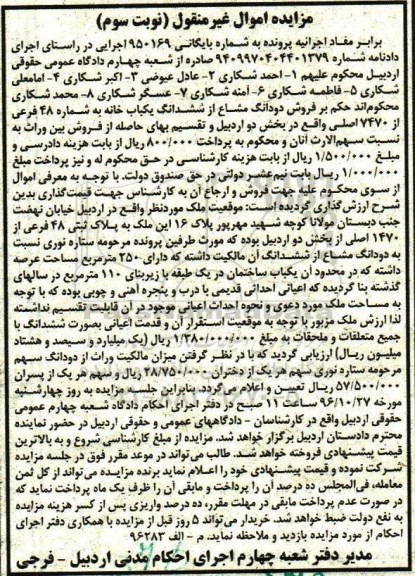 مزایده اموال غیرمنقول (نوبت سوم)
برابر مفاد اجرائیه پرونده به شماره بایگانی ۹۵۰۱۶۹ اجرایی در راستای اجرای
دادنامه شماره ۹۴۰۹۹۷۰۴۰۴۴۰۱۳۷۹ صادره از شعبه چهارم دادگاه عمومی حقوقی
اردبیل محکوم علیهم ۱- احمد شکاری ۲- عادل عیوضی ۳- اکبر شکاری ۴- امامعلی
شکاری ۵- فاطمه شکاری ۶- آمنه شکاری ۷- عسگر شکاری ۸- محمد شکاری
محکوم‌اند حکم بر فروش دودانگ مشاع از ششدانگ یکباب خانه به شماره ۴۸ فرعی
از ۷۴۷۰ اصلی واقع در بخش دو اردبیل و تقسیم بهای حاصله از فروش بین وراث به
نسبت سهم‌الارث آنان و محکوم به پرداخت ۸۰۰/۰۰۰ ریال از بابت هزینه دادرسی و
مبلغ ۱/۵۰۰/۰۰۰ ریال از بابت هزینه کارشناسی در حق محکوم له و نیز پرداخت مبلغ
۱/۰۰۰/۰۰۰ ریال بابت نیم‌عشر دولتی در حق صندوق دولت. با توجه به معرفی اموال
از سوی محکوم علیه جهت فروش و ارجاع آن به کارشناس جهت قیمت‌گذاری بدین
شرح ارزش‌گذاری گردیده است: موقعیت ملک موردنظر واقع در اردبیل خیابان نهضت
جنب دبستان مولانا کوچه شهید مهرپور پلاک ۱۶ این ملک به پلاک ثبتی ۴۸ فرعی از
۱۴۷۰ اصلی از بخش دو اردبیل بوده که مورث طرفین پرونده مرحومه ستاره نوری نسبت
به دودانگ مشاع از ششدانگ آن مالکیت داشته که دارای ۲۵۰ مترمربع مساحت عرصه
داشته که در محدود آن یکباب ساختمان در یک طبقه با زیربنای ۱۱۰ مترمربع در سالهای
گذشته بنا گردیده که اعیانی احداثی قدیمی با درب و پنجره آهنی و چوبی بوده که با توجه
به مساحت ملک مورد دعوی و نحوه احداث اعیانی موجود در آن قابلیت تقسیم نداشته
لذا ارزش ملک مزبور با توجه به موقعیت استقرار آن و قدمت اعیانی بصورت ششدانگ با
جمیع متعلقات و ملحقات به مبلغ ۱/۳۸۰/۰۰۰/۰۰۰ ریال (یک میلیارد و سیصد و هشتاد
میلیون ریال) ارزیابی گردید که با در نظر گرفتن میزان مالکیت وراث از دودانگ سهم
مرحومه ستاره نوری سهم هر یک از دختران ۲۸/۷۵۰/۰۰۰ ریال و سهم هر یک از پسران
۵۷/۵۰۰/۰۰۰ ریال تعیین و اعلام می‌گردد. بنابراین جلسه مزایده به روز چهارشنبه
مورخه ۹۶/۱۰/۲۷ ساعت ۱۱ صبح در دفتر اجرای احکام دادگاه شعبه چهارم عمومی
حقوقی اردبیل واقع در کارشناسان - دادگاههای عمومی و حقوقی اردبیل در حضور نماینده
محترم دادستان اردبیل برگزار خواهد شد. مزایده از مبلغ کارشناسی شروع و به بالاترین
قیمت پیشنهادی فروخته خواهد شد. طالب می‌تواند در موعد مقرر فوق در جلسه مزایده
شرکت نموده و قیمت پیشنهادی خود را اعلام نماید برنده مزایده می‌تواند از کل ثمن
معامله، فی‌المجلس ده درصد آن را پرداخت و مابقی آن را ظرف یک ماه پرداخت نماید که
در صورت عدم پرداخت مابقی در مهلت مقرر، ده درصد واریزی پس از کسر هزینه مزایده
به نفع دولت ضبط خواهد شد. خریدار می‌تواند ۵ روز قبل از مزایده با همکاری دفتر اجرای
احکام از مورد مزایده بازدید و ملاحظه نماید. م - الف ۹۶۲۸۳
مدیر دفتر شعبه چهارم اجرای احکام مدنی اردبیل - فرجی